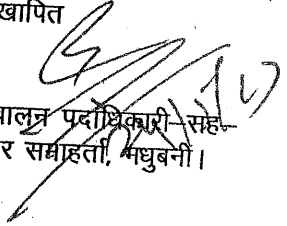 खापित
पालन पदाधिकारी-सह-
र समाहर्ता, मधुबनी।